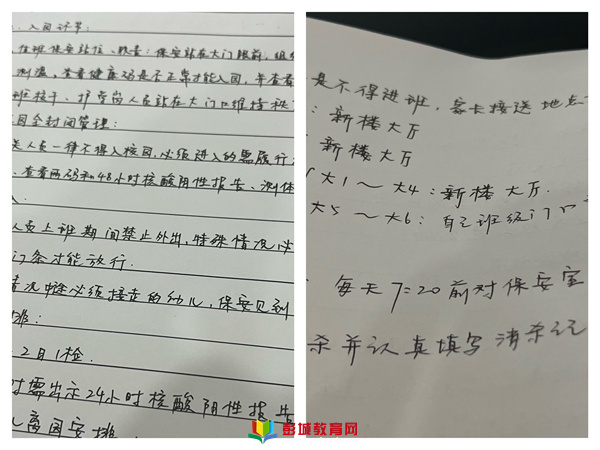 、入园环节:
值班保安站位、职责:保安站在大门眼前,组织
测温,查看健康码是否正常才能入园,并查看
班孩子、护学岗人员站在大门口维持秩
园全封闭管理:
人员一律不得入校园,必须进入的需履行
、查看两码和48小时核酸阴性报告、测体
人员上班期间禁止外出,特殊情况必
门条才能放行.
情况中途必须接走的幼儿,保安见到
班:
2日1检.
时需出示24小时核酸阴性报告
离园安排.
是不得进班,客卡接送地点
:新楼大厅
新楼大厅
大1~大4:新楼大厅.
大5~大6:自己班级门口
每天7:20前对保安室
杀并认真填写消杀记
彭城教育网